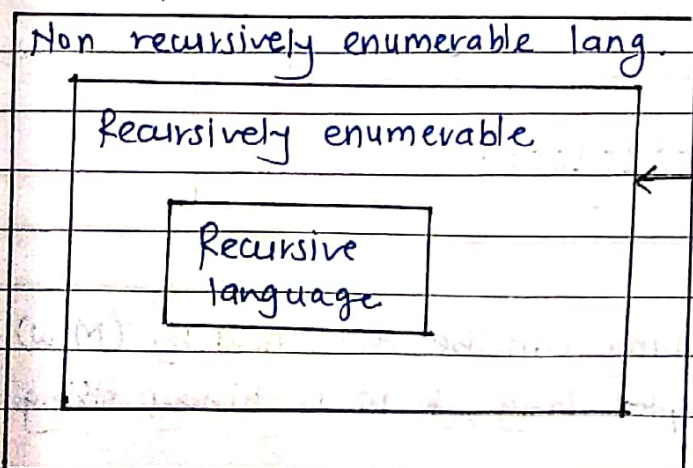 Non recursively enumerable lang.
Recursively enumerable
Recursive
language